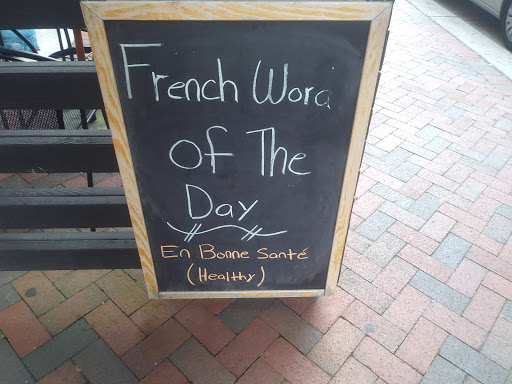 French Word
of The
Day
En Bonne Santé
(Healthy)